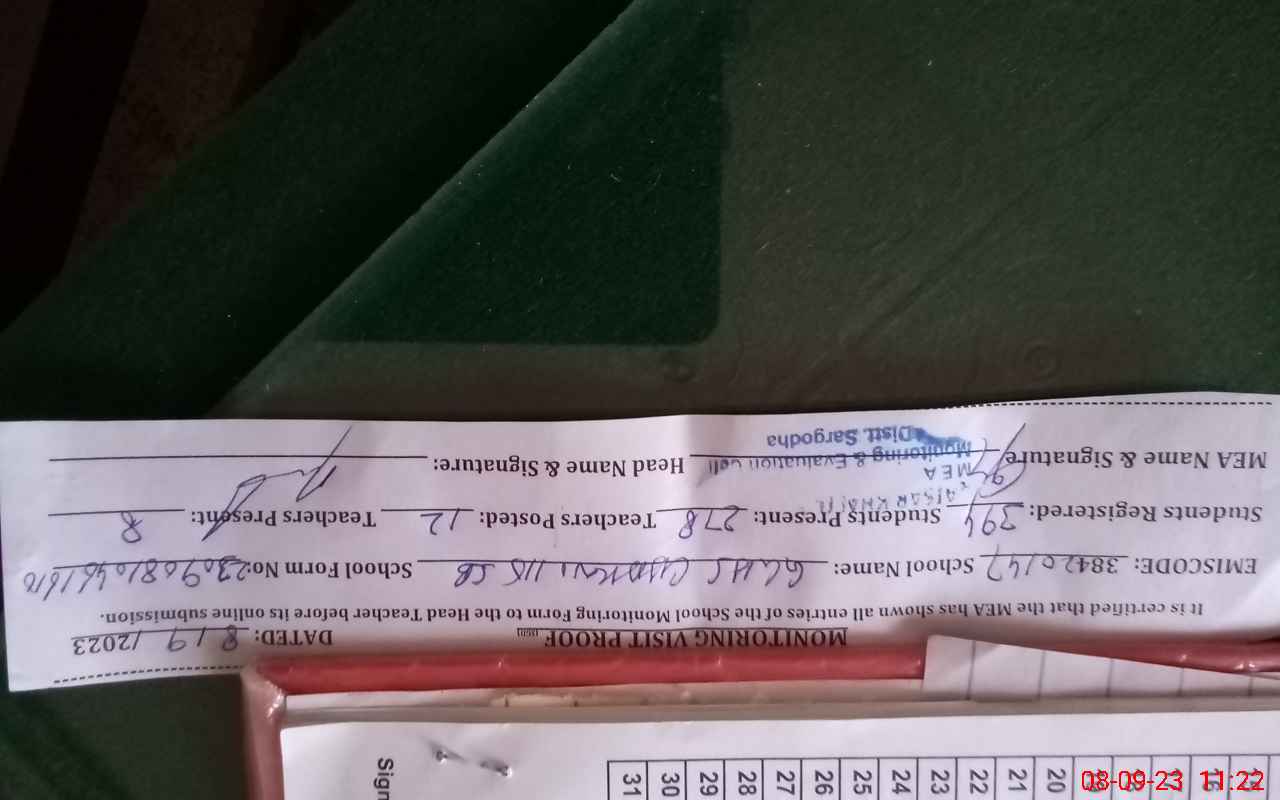 MONITORING VISIT PROOF DATED: 8/9/2023
It is certified that the MEA has shown all entries of the School Monitoring Form to the Head Teacher before its online submission.
EMISCODE: 38420147 School Name: GGHS CHAK NO 115 SB School Form No:
Students Registered: 394 Students Present: 278 Teachers Posted: 12 Teachers Present: 8
MEA Name & Signature Head Name & Signature:
MEA
Monitoring & Evaluation Cell
Distt. Sargodha
Sign
31 30 29 28 27 26 25 24 23 22 21 20 19 18 17 16 15 14
08-09-23 11:22